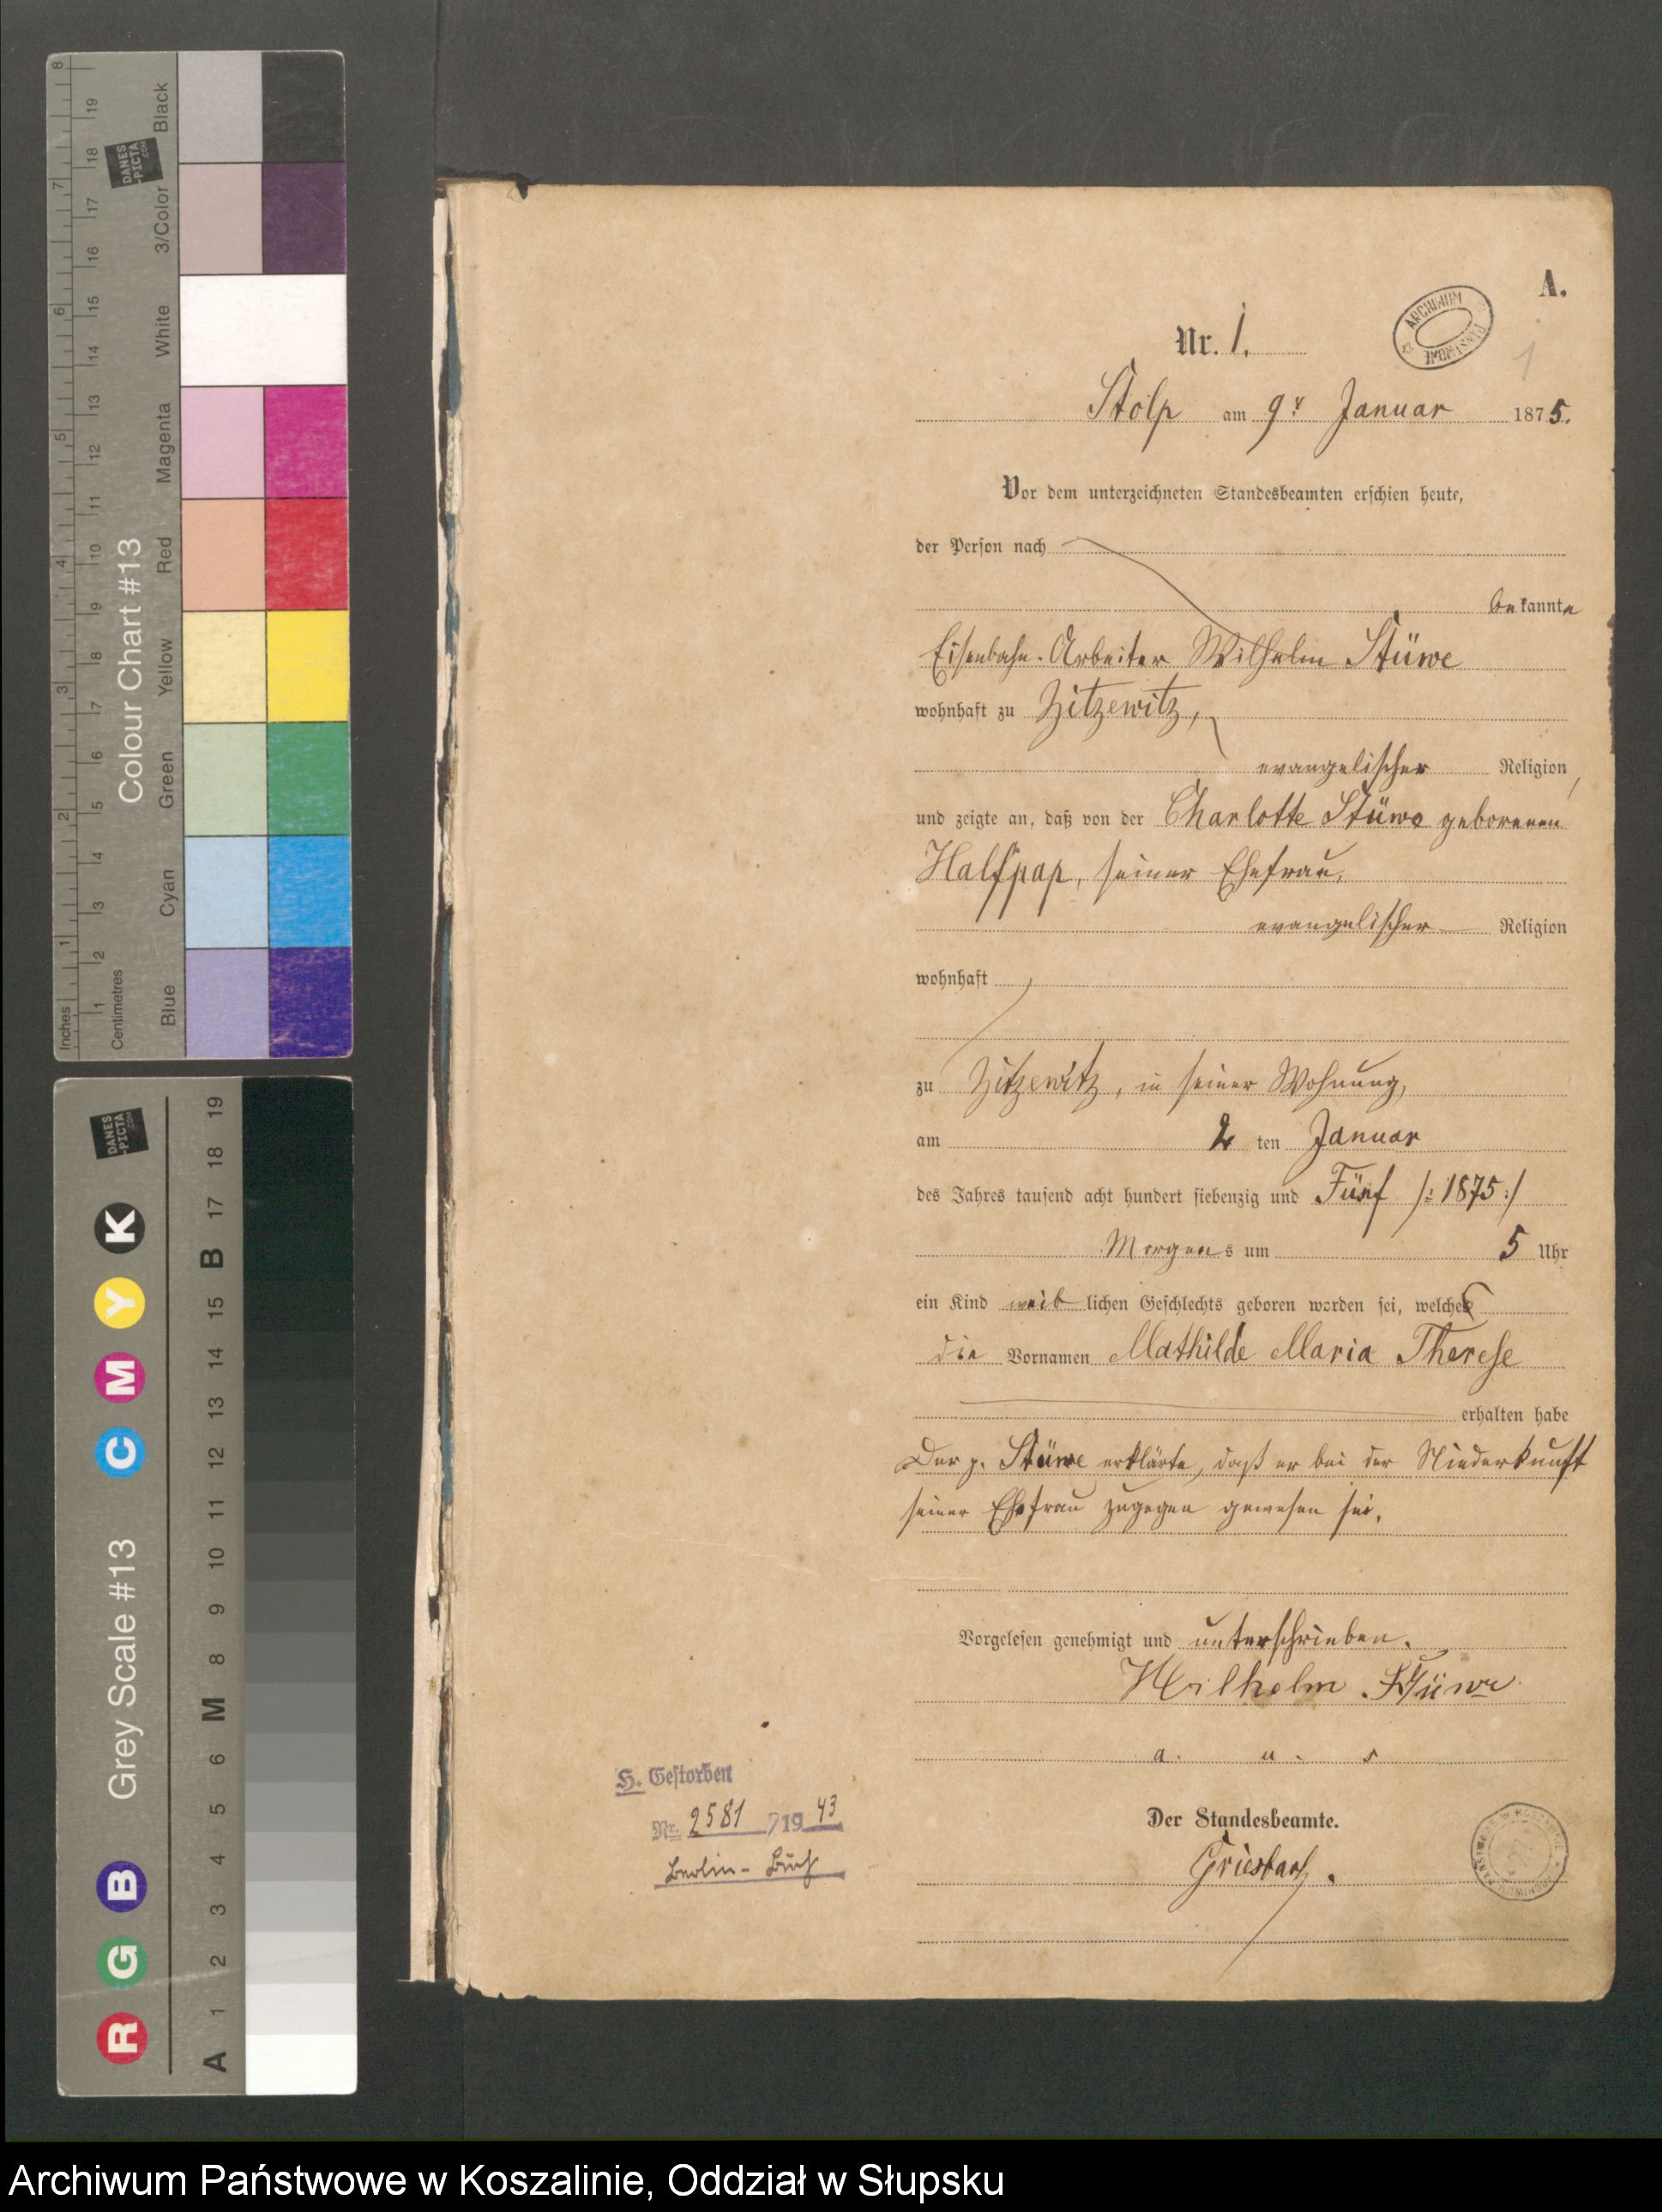 A.
Nr. 1.
ARCHIWUM PAŃSTWOWE
1
Stolp am 9. Januar 1875.
Vor dem unterzeichneten Standesbeamten erschien heute,
der Person nach
bekannte
Eisenbahn-Arbeiter Wilhelm Stüwe
wohnhaft zu Zitzewitz,
evangelischer Religion,
und zeigte an, daß von der Charlotte Stüwe geborenen
Halfpap, seiner Ehefrau,
evangelischer Religion
wohnhaft
zu Zitzewitz, in seiner Wohnung,
am 2 ten Januar
des Jahres tausend acht hundert siebenzig und Fünf /: 1875 :/
Morgens um 5 Uhr
ein Kind weiblichen Geschlechts geboren worden sei, welches
die Vornamen Mathilde Maria Therese
erhalten habe
Der p. Stüwe erklärte, daß er bei der Niederkunft
seiner Ehefrau zugegen gewesen sei.
Vorgelesen genehmigt und unterschrieben.
Wilhelm Stüwe
a. u. s
Der Standesbeamte.
Griesbach.
H. Gestorben
Nr. 2581 /19 43
Berlin-Buch
Inches 1 2 3 4 5 6 7 8
Centimetres 1 2 3 4 5 6 7 8 9 10 11 12 13 14 15 16 17 18 19
DANES-PICTA.COM
Colour Chart #13
Blue Cyan Green Yellow Red Magenta White 3/Color Black
DANES-PICTA.COM
Grey Scale #13
R G B C M Y K
A 1 2 3 4 5 6 M 8 9 10 11 12 13 14 15 B 17 18 19
Archiwum Państwowe w Koszalinie, Oddział w Słupsku